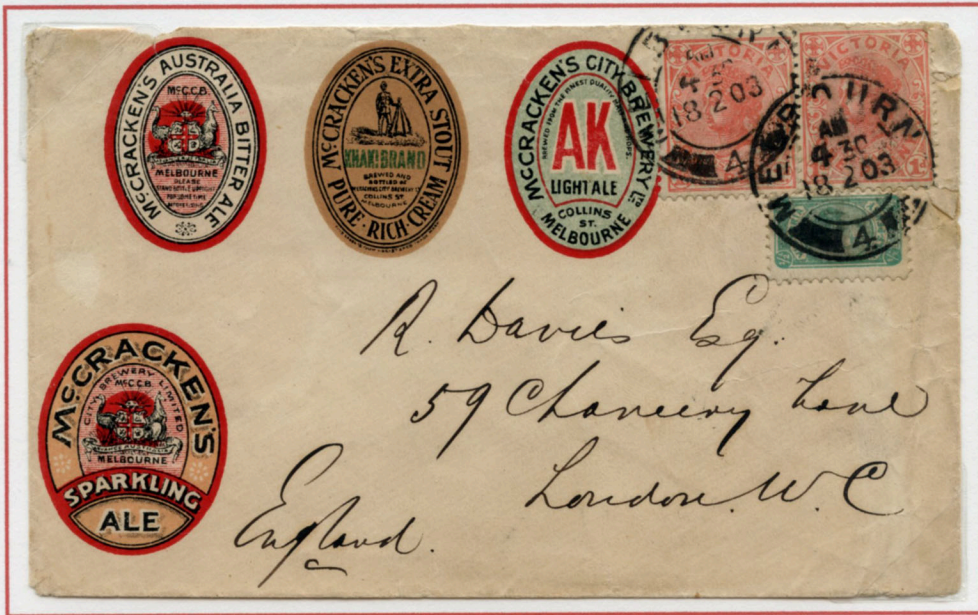 McCRACKEN'S AUSTRALIA BITTER ALE
McC.C.B.
MELBOURNE
PLEASE
McCRACKEN'S EXTRA STOUT
KHAKI BRAND
BREWED AND
BOTTLED BY
COLLINS ST
MELBOURNE
PURE · RICH · CREAM
McCRACKEN'S CITY BREWERY LTD.
BREWED FROM THE FINEST QUALITY
AK
LIGHT ALE
COLLINS
ST.
MELBOURNE
VICTORIA
AM
4 30
18 2 03
4
VICTORIA
MELBOURN
AM
4 30
18 2 03
4
McCRACKEN'S
CITY BREWERY LIMITED
McC.C.B.
MELBOURNE
SPARKLING
ALE
R. Davies Esq.
59 Chancery Lane
London. W. C
England.